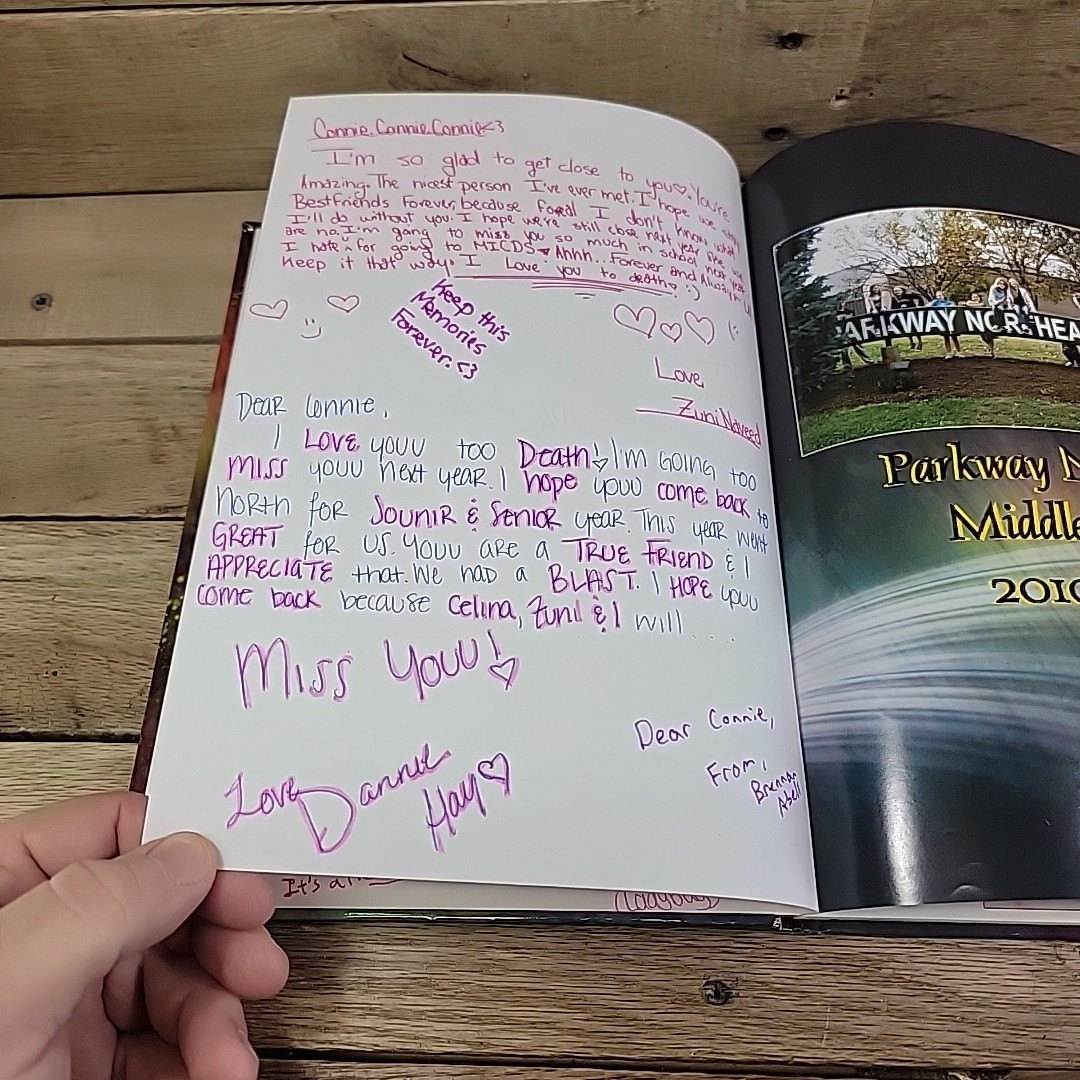 Connie. Connie. Connie <3
I'm so glad to get close to you♡. You're
Amazing. The nicest person I've ever met. I hope we stay
BestFriends Forever, because foreal I don't know what
I'll do without you. I hope we're still close next year like we
are now. I'm gang to miss you so much in school next year
I hate for going to MICDS ♥ Ahhh... Forever and Always
Keep it that way. I Love you to death. :)
Keep this
Memories
Forever. <3
Love
Zuni Naveed
Dear Connie,
I LOVE youu too Death! I'm GOING too
MISS youu next year. I hope youu come back to
NORTH for JOUNIR & SENIOR year. This year went
GREAT for us. Youu are a TRUE FRIEND & I
APPRECIATE that. We had a BLAST. I HOPE youu
come back because Celina, Zunil & I will ....
MISS YOUU!♡
Love Dannie
Hay♡
Dear Connie,
From,
Brennan
Abell
It's a
(Ladybug)
PARKWAY NORTHEA
Parkway N
Middle
2010